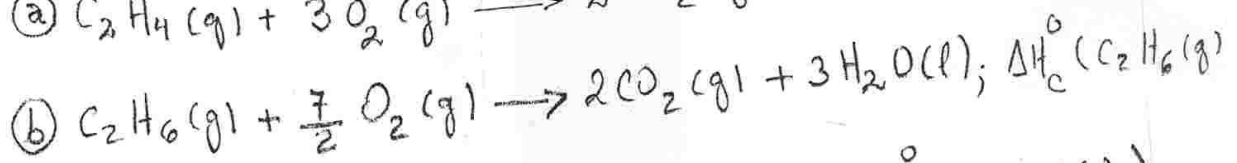 (a) C₂H₄(g) + 3O₂(g) ⟶
(b) C₂H₆(g) + 7/2 O₂(g) ⟶ 2CO₂(g) + 3H₂O(l); ΔH°c (C₂H₆(g)